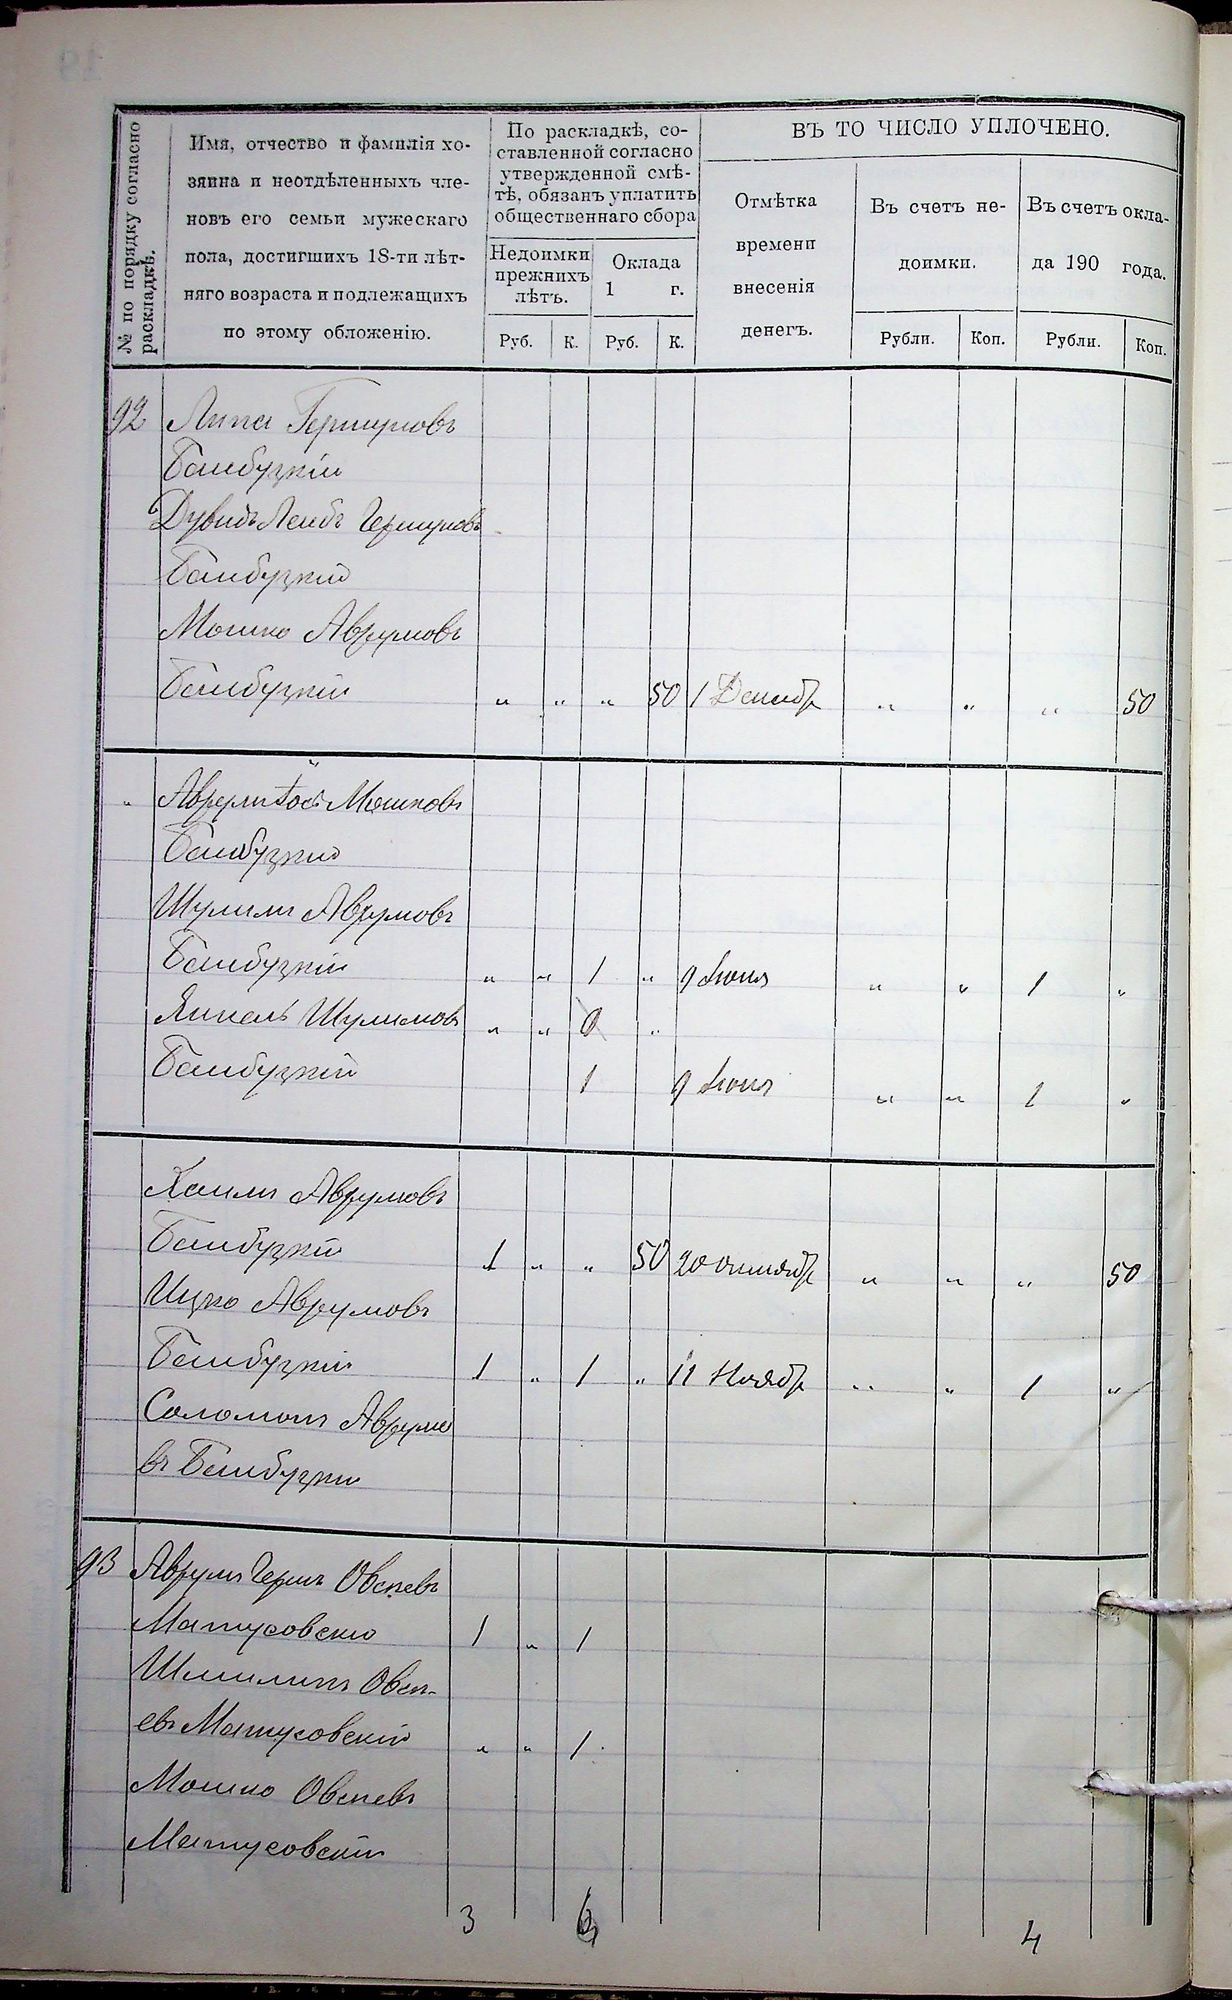 № по порядку согласно раскладкѣ.
Имя, отчество и фамилія хо-
зяина и неотдѣленныхъ чле-
новъ его семьи мужескаго
пола, достигшихъ 18-ти лѣт-
няго возраста и подлежащихъ
по этому обложенію.
По раскладкѣ, со-
ставленной согласно
утвержденной смѣ-
тѣ, обязанъ уплатить
общественнаго сбора
Недоимки
прежнихъ
лѣтъ.
Оклада
1 г.
Руб. К. Руб. К.
ВЪ ТО ЧИСЛО УПЛОЧЕНО.
Отмѣтка
времени
внесенія
денегъ.
Въ счетъ не-
доимки.
Въ счетъ окла-
да 190 года.
Рубли. Коп. Рубли. Коп.
92 Липа Гершуновъ
Байбузкій
Дувидъ Лейбъ Гершуновъ
Байбузкій
Мошко Аврумовъ
Байбузкій " " " 50 1 Декабр " " " 50
" Аврумъ Мошковъ
Байбузкій
Шулимъ Аврумовъ
Байбузкій " " 1 " 9 Іюня " " 1 "
Янкель Шулимовъ " " "
Байбузкій 1 9 Іюня " " 1 "
Хаимъ Аврумовъ
Байбузкій 1 " " 50 20 октябр " " " 50
Ицко Аврумовъ
Байбузкій 1 " 1 " 11 Ноябр " " 1 "
Соломонъ Аврумо
въ Байбузкій
93 Аврумъ Гершъ Овсеевъ
Матусовскій 1 " 1
Овсе-
евъ Матусовскій " " 1
Мошко Овсеевъ
Матусовскій
3 4